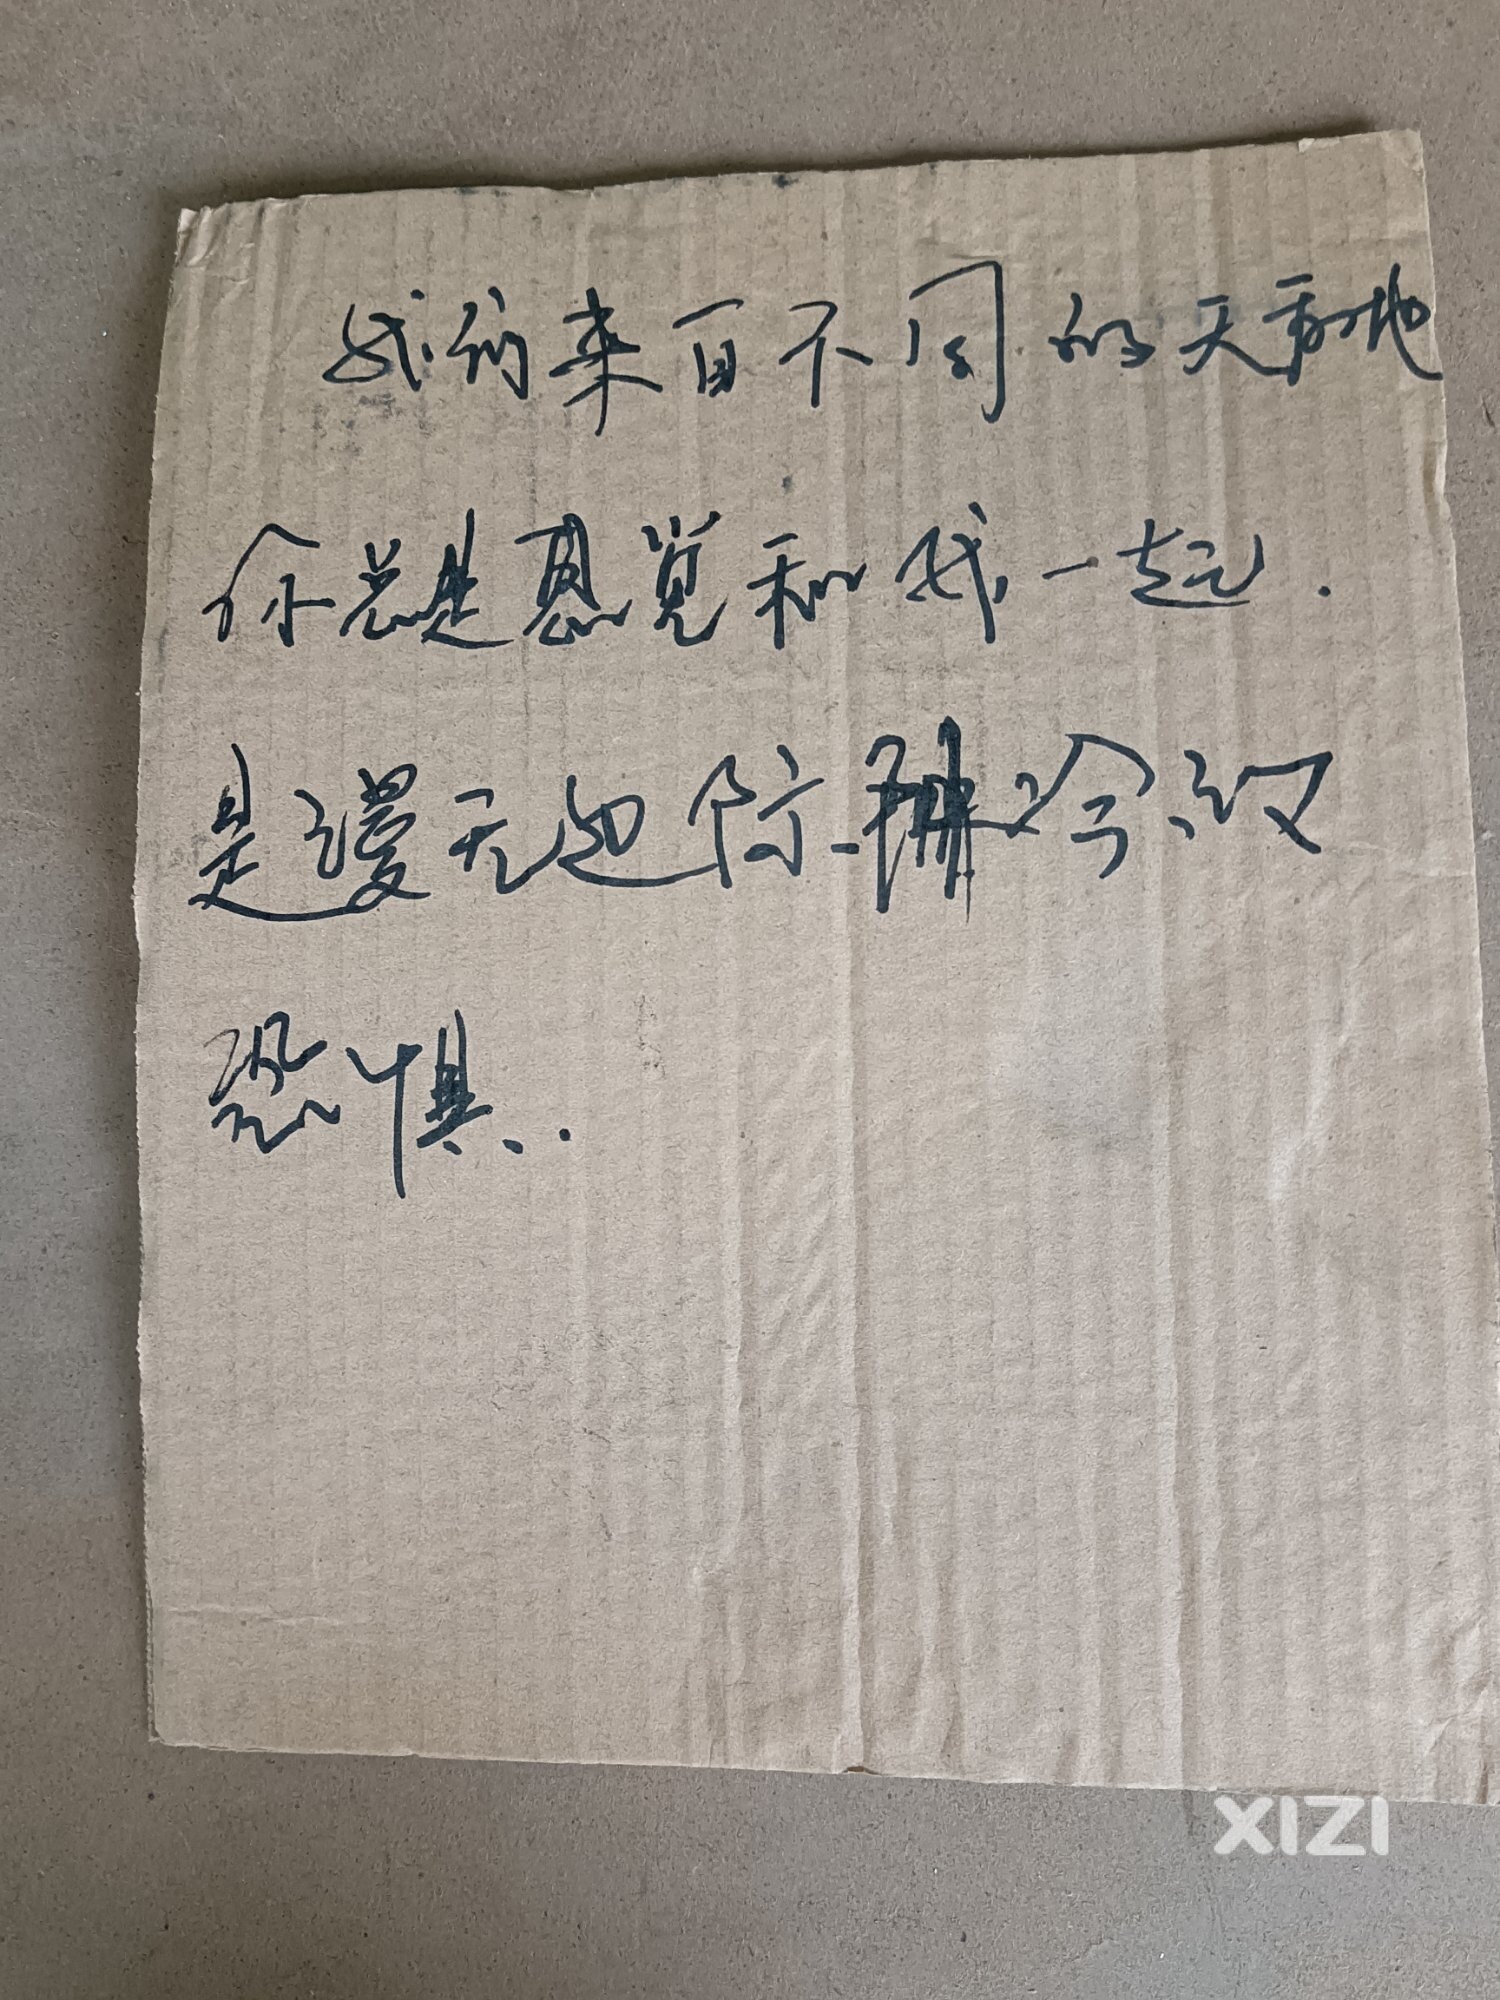 我们来自不同的天和地
你总是感觉和我一起.
是漫无边际 冷和
恐惧..
XIZI